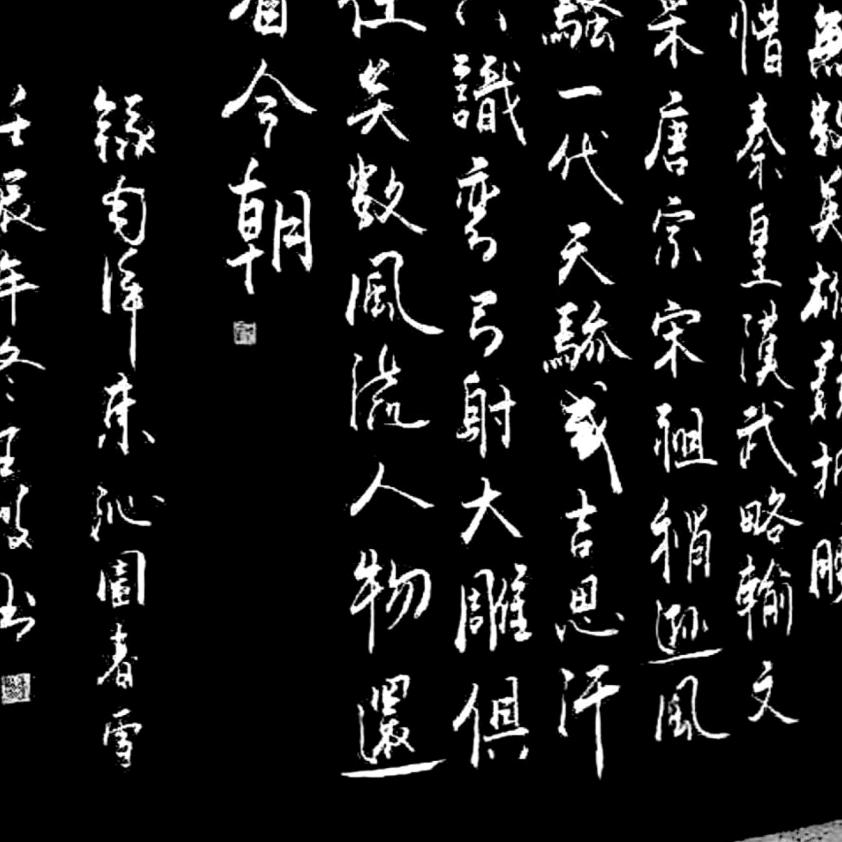 無數英雄競折腰
惜秦皇漢武略輸文
采唐宗宋祖稍遜風
騷一代天驕成吉思汗
只識彎弓射大雕俱
往矣數風流人物還
看今朝
錄澤東沁園春雪
壬辰年冬王书